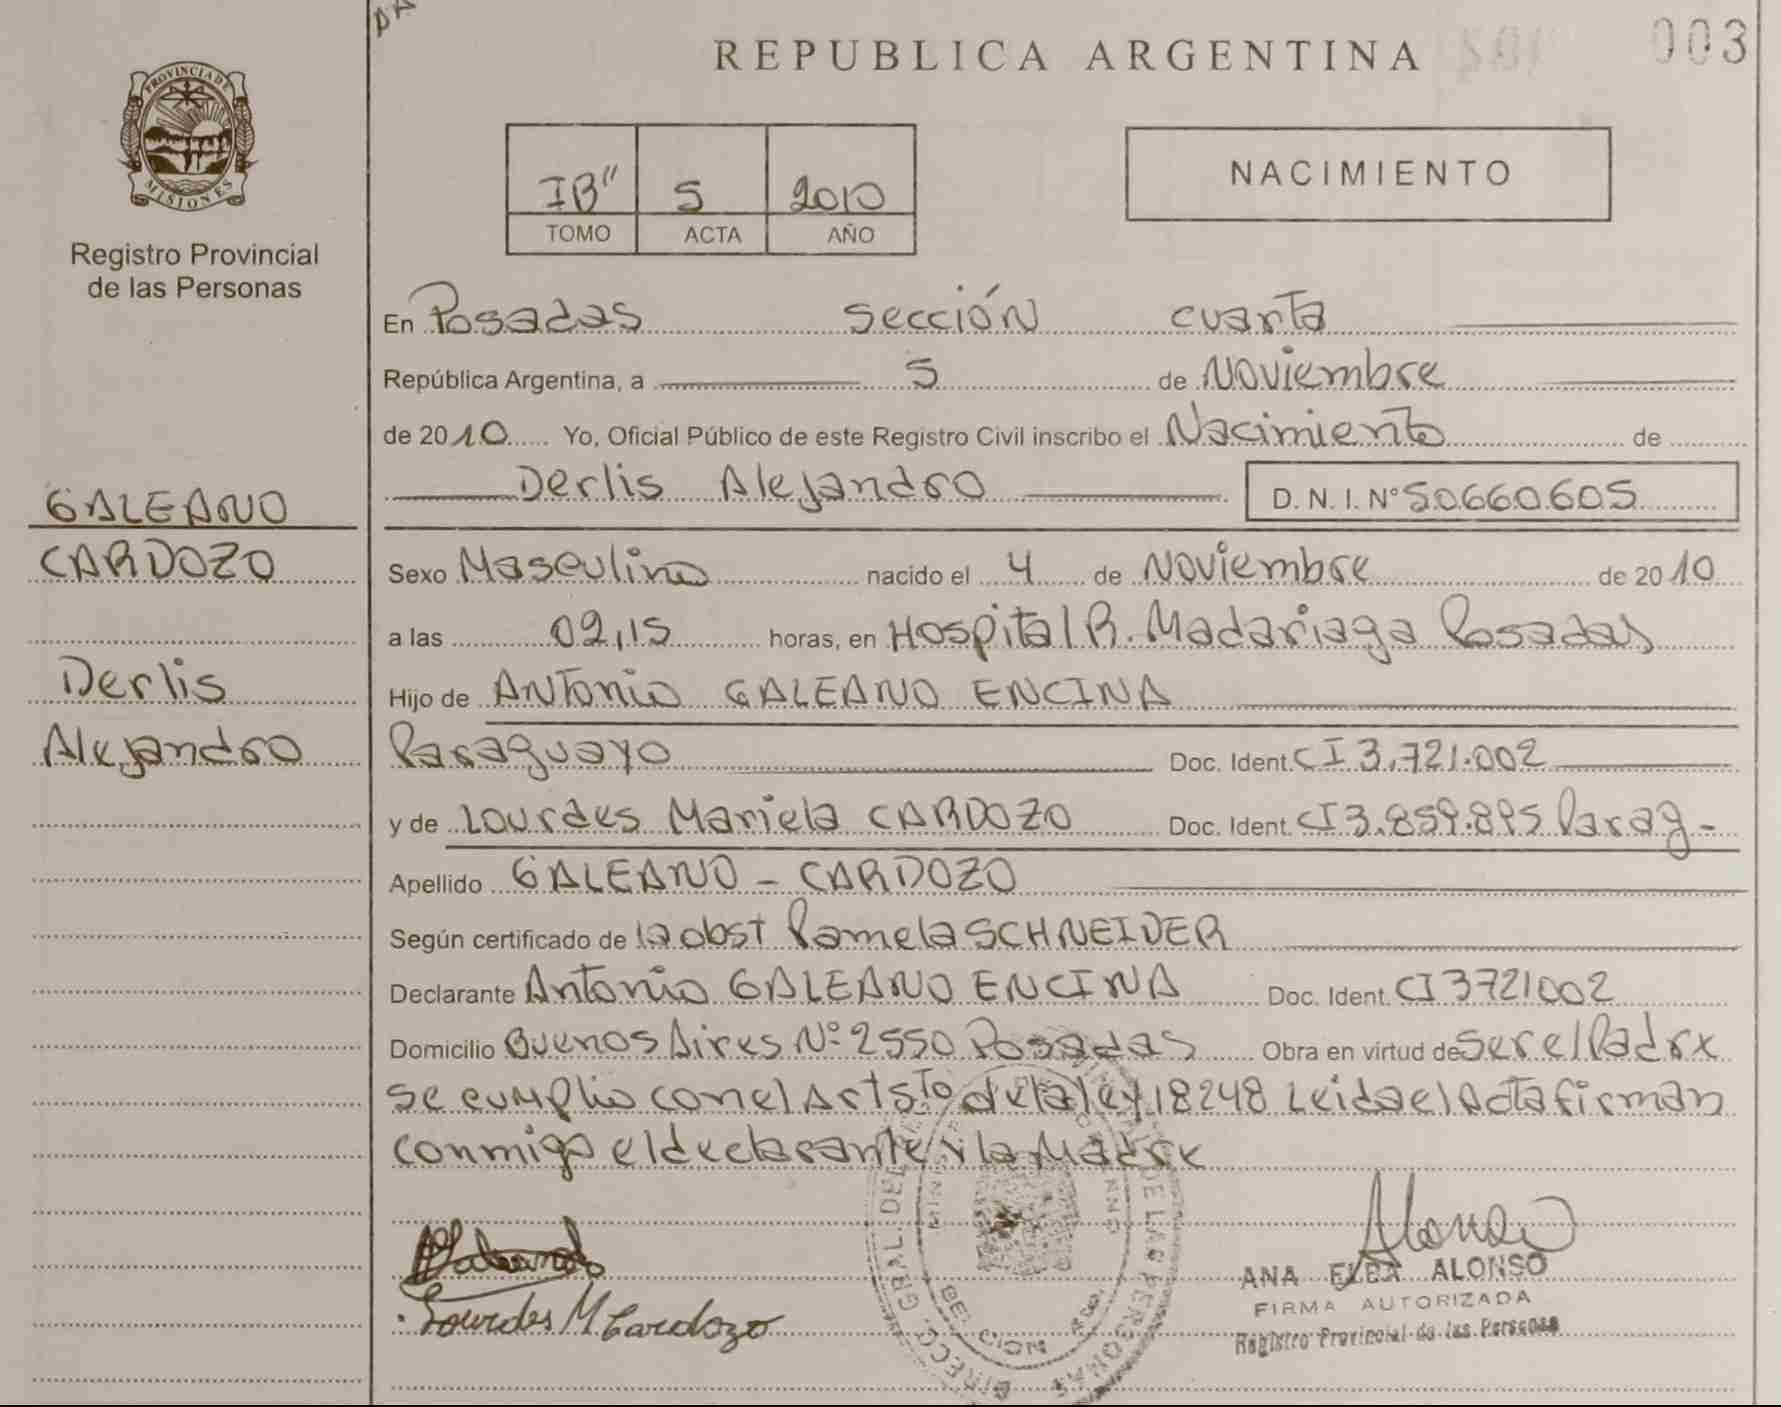 REPUBLICA ARGENTINA
003
PROVINCIA DE
MISIONES
Registro Provincial
de las Personas
IB" 5 2010
TOMO ACTA AÑO
NACIMIENTO
En Posadas Sección cuarta
República Argentina, a 5 de Noviembre
de 2010 Yo, Oficial Público de este Registro Civil inscribo el Nacimiento de
Derlis Alejandro D. N. I. N° 50660605
GALEANO
CARDOZO
Derlis
Alejandro
Sexo Masculino nacido el 4 de Noviembre de 2010
a las 02,15 horas, en Hospital R. Madariaga Posadas
Hijo de Antonio GALEANO ENCINA
Paraguayo Doc. Ident. CI 3.721.002
y de Lourdes Mariela CARDOZO Doc. Ident. CI 3.859.895 Parag-
Apellido GALEANO - CARDOZO
Según certificado de la obst Pamela SCHNEIDER
Declarante Antonio GALEANO ENCINA Doc. Ident. CI 3721002
Domicilio Buenos Aires N° 2550 Posadas Obra en virtud de Ser el Padre
se cumplio con el Art 5to de la ley 18248 Leida el Acta firman
conmigo el declarante y la Madre
Lourdes M Cardozo
Alonso
ANA ELBA ALONSO
FIRMA AUTORIZADA
Registro Provincial de las Personas